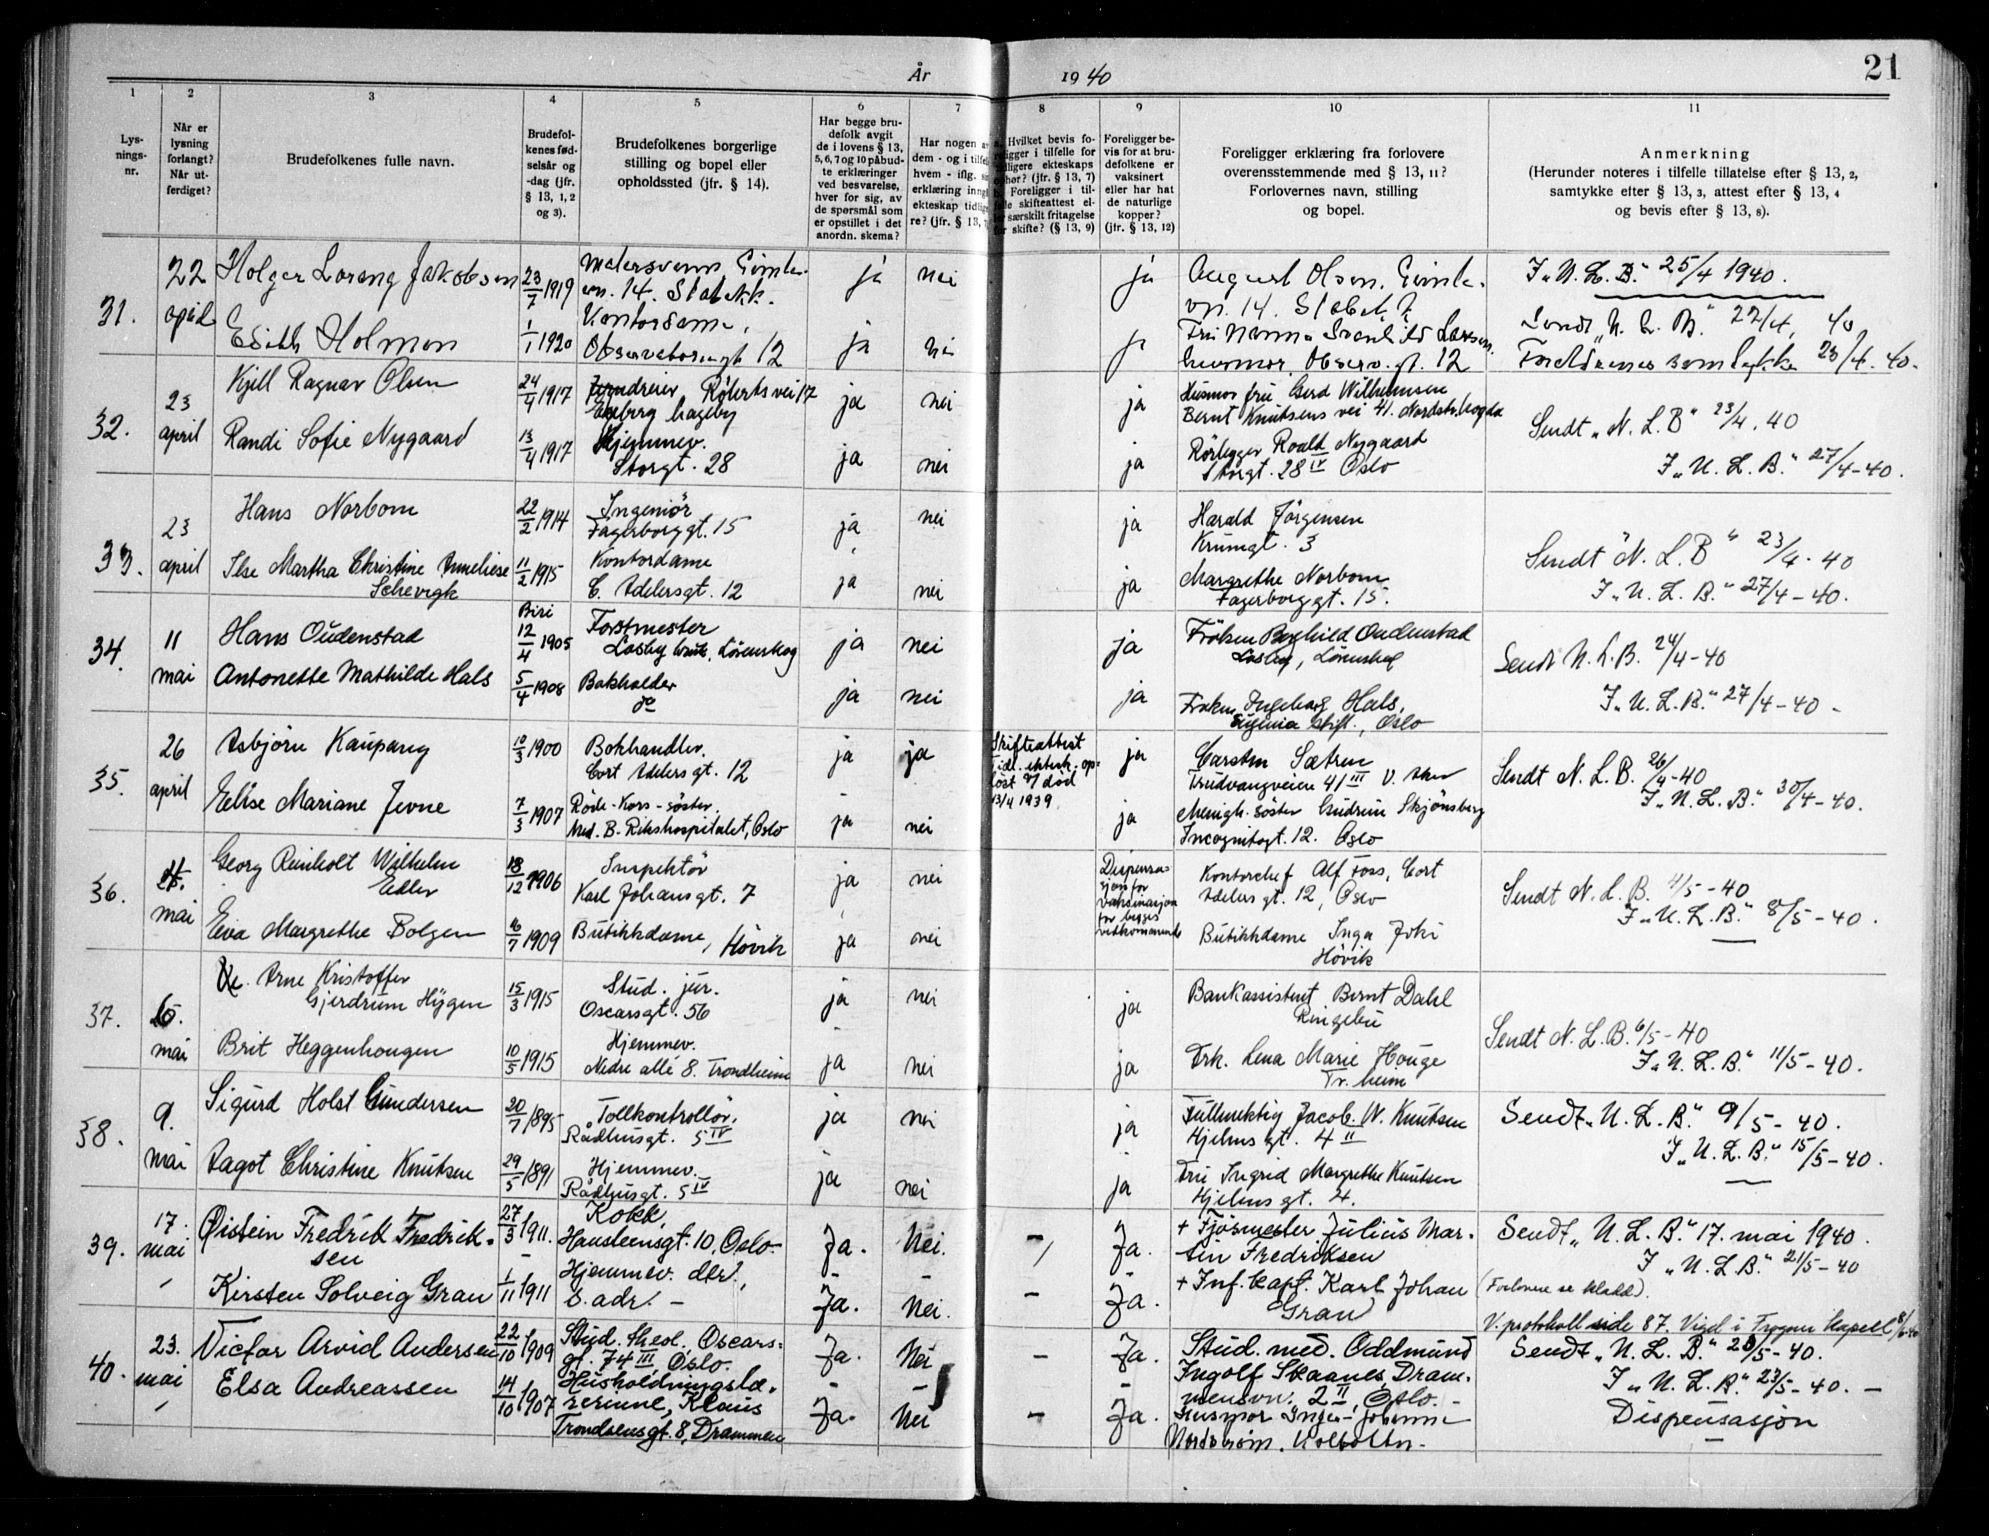 År 1940
21
1 2 3 4 5 6 7 8 9 10 11
Lys-
nings-
nr.
Når er
lysning
forlangt?
Når ut-
ferdiget?
Brudefolkenes fulle navn.
Brudefol-
kenes fød-
selsår og
-dag (jfr.
§ 13, 1, 2
og 3).
Brudefolkenes borgerlige
stilling og bopel eller
opholdssted (jfr. § 14).
Har begge bru-
defolk avgit
de i lovens § 13,
5, 6, 7 og 10 påbud-
te erklæringer
ved besvarelse,
hver for sig, av
de spørsmål som
er opstillet i det
anordn. skema?
Har nogen
dem - og i
hvem - iflg.
erklæring
ekteskap
re? (jfr. § 13,
Hvilket bevis fo-
i tilfelle for
ekteskaps
(jfr. § 13, 7)
Foreligger i til-
skifteattest el-
særskilt fritagelse
skifte? (§ 13, 9)
Foreligger be-
vis for at bru-
defolkene er
vaksinert
eller har hat
de naturlige
kopper?
(jfr. § 13, 12)
Foreligger erklæring fra forlovere
overensstemmende med § 13, 11?
Forlovernes navn, stilling
og bopel.
Anmerkning
(Herunder noteres i tilfelle tillatelse efter § 13, 2,
samtykke efter § 13, 3, attest efter § 13, 4
og bevis efter § 13, 8).
31. 22 april
Holger Lorang Jakobsen 23/7 1919
Malersvenn
vn. 14. Stabekk. ja nei ja
August Olsen,
vn. 14 Stabekk
I „N. L. B.“ 25/4 1940.
Edith Holmen 1/1 1920
Kontordame,
Observatoriegt 12 ja nei ja
husmor, Observ. gt. 12
Sendt „N. L. B.“ 22/4, 40
Foreldrenes samtykke 23/4. 40.
32. 23 april
Kjell Ragnar Olsen 24/4 1917
Jerndreier
ja nei ja
Husmor fru Gerd Wilhelmsen
Bernt Knutsens vei 41.
Sendt „N. L. B“ 23/4. 40
Randi Sofie Nygaard 13/4 1917
Hjemmev.
Storgt. 28 ja nei ja
Rörlegger Roald Nygaard
Storgt. 28 IV Oslo
I „N. L. B.“ 27/4-40.
33. 23 april
Hans Norbom 22/2 1914
Ingeniör
Fagerborggt. 15 ja nei ja
Harald Jörgensen
Krumgt. 3
Sendt "N. L. B" 23/4. 40
Ilse Martha Christine Anneliese
Schevigk 11/2 1915
Kontordame
C. Adelersgt. 12 ja nei ja
Margrethe Norbom
Fagerborggt. 15.
I „N. L. B.“ 27/4-40.
34. 11 mai
Hans Oudenstad Biri 12/4 1905
Forstmester
Losby bruk, Lörenskog ja nei ja
Fröken Borghild Oudenstad
Losby, Lörenskog
Sendt N. L. B. 24/4-40
Antonette Mathilde Hals 5/4 1908
Bokholder
do ja nei ja
Fröken Ingeborg Hals,
Eugenia Stift., Oslo
I „N. L. B.“ 27/4-40 -
35. 26 april
Asbjörn Kaupang 10/3 1900
Bokhandler.
Cort Adelers gt. 12 ja ja
Skifteattest
Tidl. ektesk. op-
löst v/ död
13/4 1939
ja
Carsten Sætren
Trudvangveien 41 III V. Aker
Sendt N. L. B. 26/4-40
I „N. L. B.“ 30/4-40.
Eelise Mariane Jevne 7/3 1907
Röde-Kors-söster
Med. B. Rikshospitalet, Oslo ja nei ja
Menigh. söster Gudrun Skjönsberg
Incognitogt. 12. Oslo
36. 4. mai
Georg Reinholt Wilhelm
Edler 18/12 1906
Inspektör
Karl Johans gt. 7 ja nei
Dispensa-
sjon for
vaksinasjon
for begges
vedkommende
Kontorchef Alf Foss, Cort
Adelers gt. 12, Oslo
Sendt N. L. B. 4/5-40
I „N. L. B.“ 8/5-40.
Eva Margrethe Bolgen 16/7 1909
Butikkdame, Hövik ja nei
Butikkdame Inga Joki
Hövik
37. 6. mai
Arne Kristoffer
Gjerdrum Hygen 15/3 1915
Stud. jur.
Oscarsgt. 56 ja nei ja
Bankassistent Bernt Dahl
Ringebu
Sendt N. L. B. 6/5-40
Brit Heggenhougen 10/5 1915
Hjemmev.
Nedre allé 8. Trondheim ja nei ja
Frk. Lena Marie Houge
Tr. heim
I „N. L. B.“ 11/5-40.
38. 9. mai
Sigurd Holst Gundersen 20/7 1895
Tollkontrollör.
Rådhusgt. 5 IV ja nei ja
Fullmektig Jacob W. Knutsen
Hjelms gt. 4 II
Sendt „N. L. B.“ 9/5-40.
Aagot Christine Knutsen 29/5 1891
Hjemmev.
Rådhusgt. 5 IV ja nei ja
Fru Ingrid Margrethe Knutsen
Hjelms gt. 4.
I „N. L. B.“ 15/5-40.
39. 17. mai
Øistein Fredrik Fredrik-
sen 27/3 1911.
Kokk,
Hansteensgt. 10, Oslo Ja. Nei. - Ja.
+ Fjösmester Julius Mar-
tin Fredriksen
Sendt „N. L. B.“ 17. mai 1940.
I „N. L. B.“ 21/5-40
Kirsten Solveig Gran 1/11 1911
Hjemmev. dtr.,
s. adr. - Ja. Nei. - Ja.
+ Inf. kapt. Karl Johan
Gran
(Forlovere se kladd).
V. protokoll side 87. Viget i Frogner kapell 8/6 40
40. 23. mai
Victor Arvid Andersen 22/10 1909
Stud. theol, Oscars-
gt. 74 III, Oslo. Ja. Nei - Ja.
Stud. med. Oddmund
Ingolf Skaanes Dram-
mensvn. 2 II, Oslo. -
Sendt „N. L. B.“ 20/5-40.
I „N. L. B.“ 23/5-40. -
Elsa Andreassen 14/10 1907
Husholdningslæ-
rerinne, Klaus
Trondsensgt. 8, Drammen Ja. Nei - Ja.
Husmor Inga Johanne
Nordström. Kolbotn. -
Dispensasjon